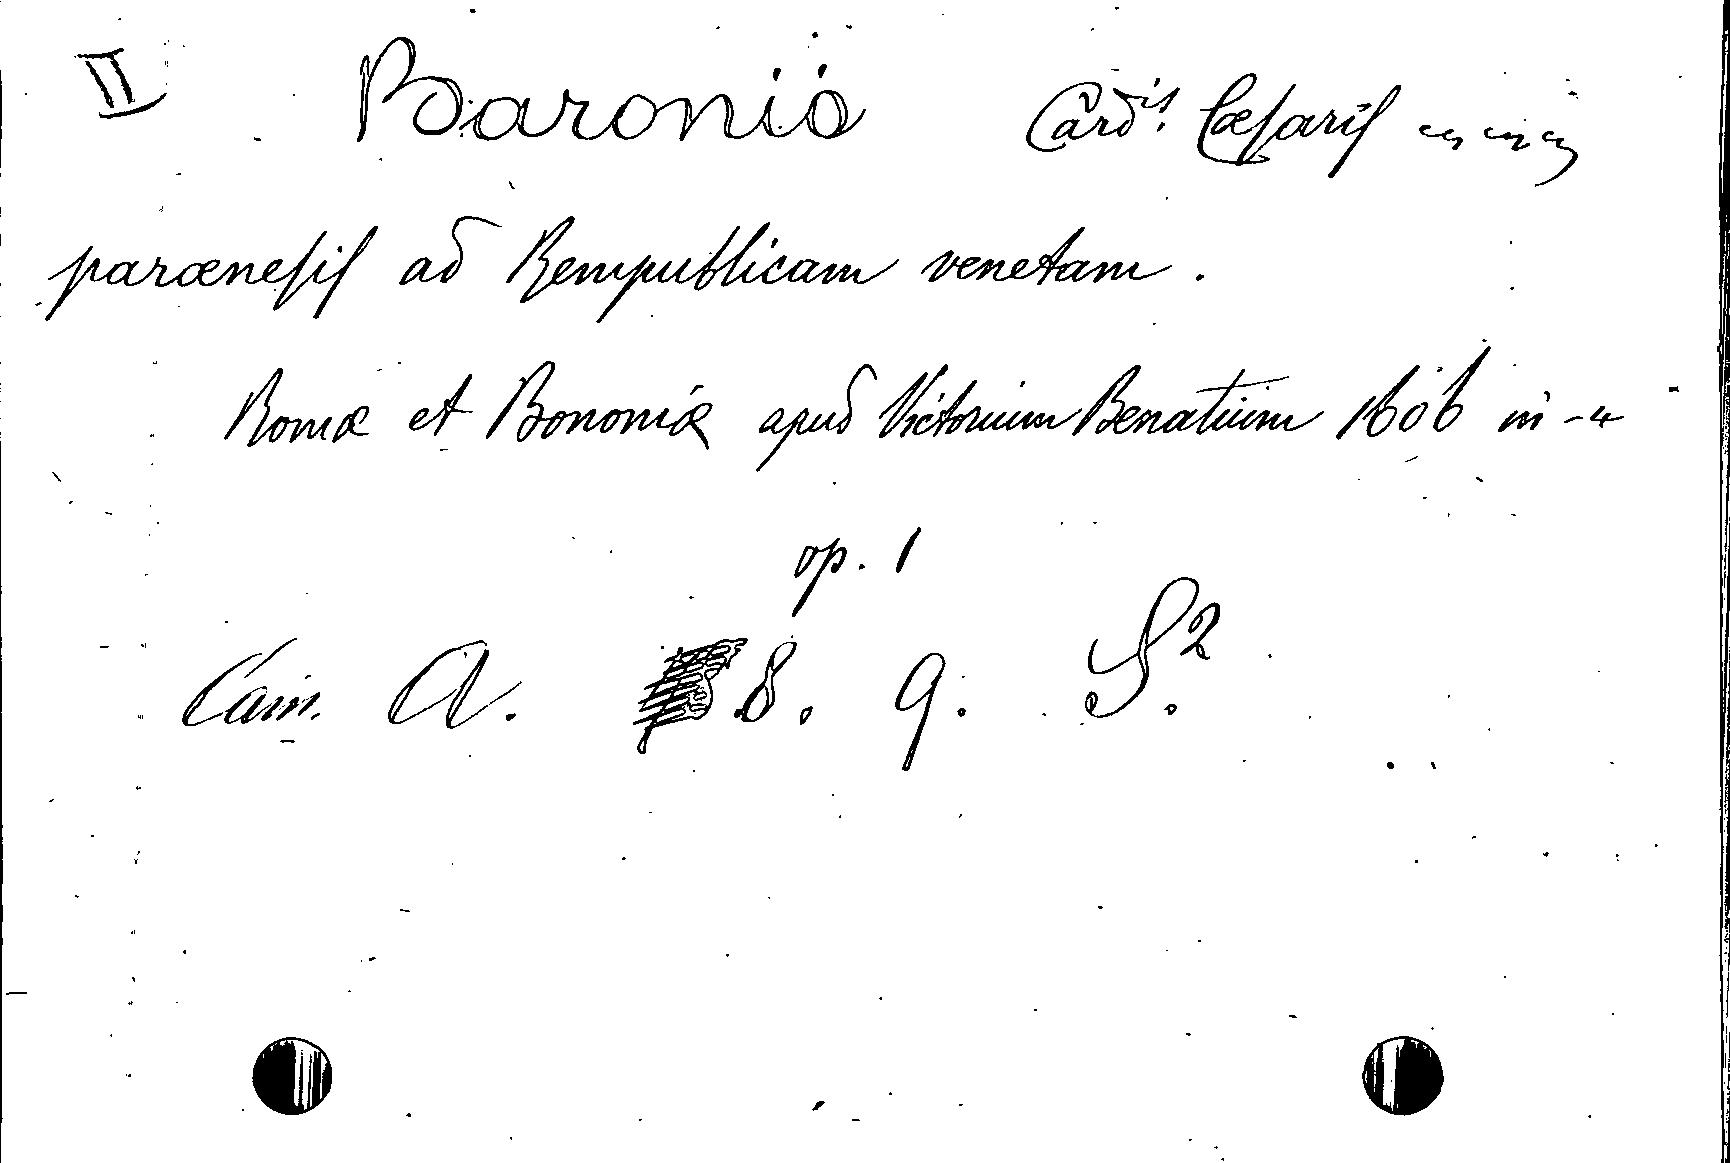 II Baronio Card.is Cæsaris
parænesis ad Rempublicam venetam.
Romæ et Bononiæ apud Victorium Benatium 1606 in-4
op. 1
Cam. A. 8. 9. S.2